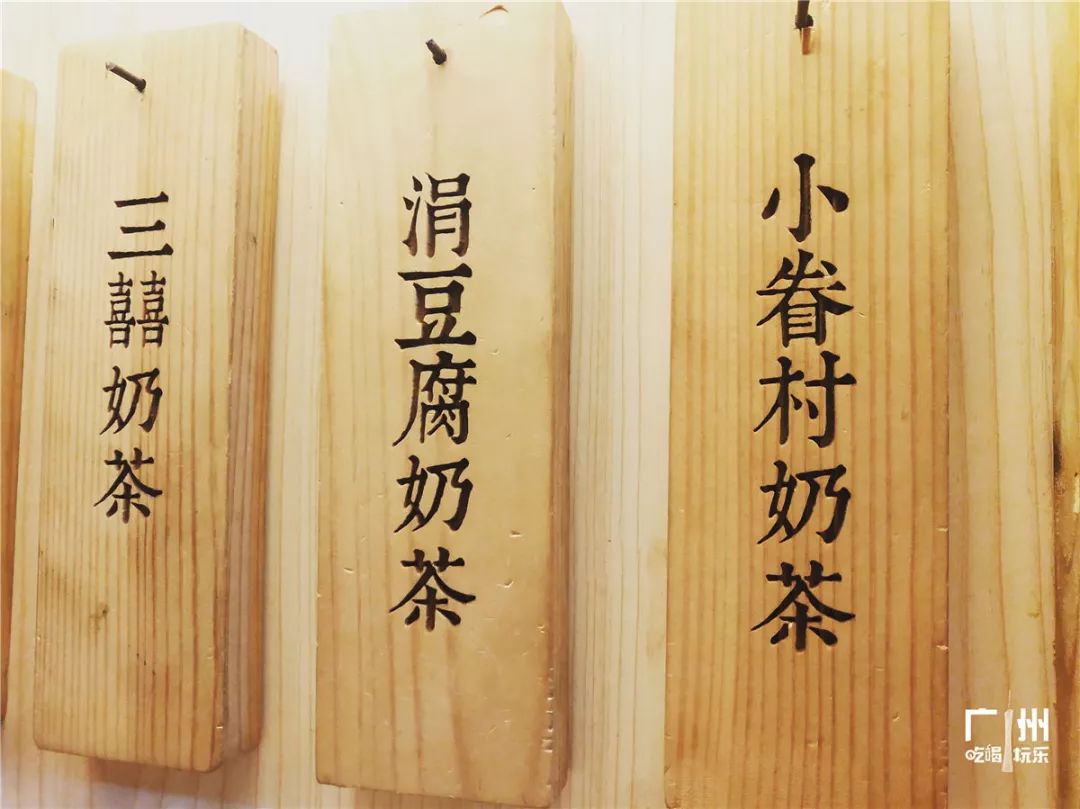 三囍奶茶
涓豆腐奶茶
小眷村奶茶
广州
吃喝玩乐